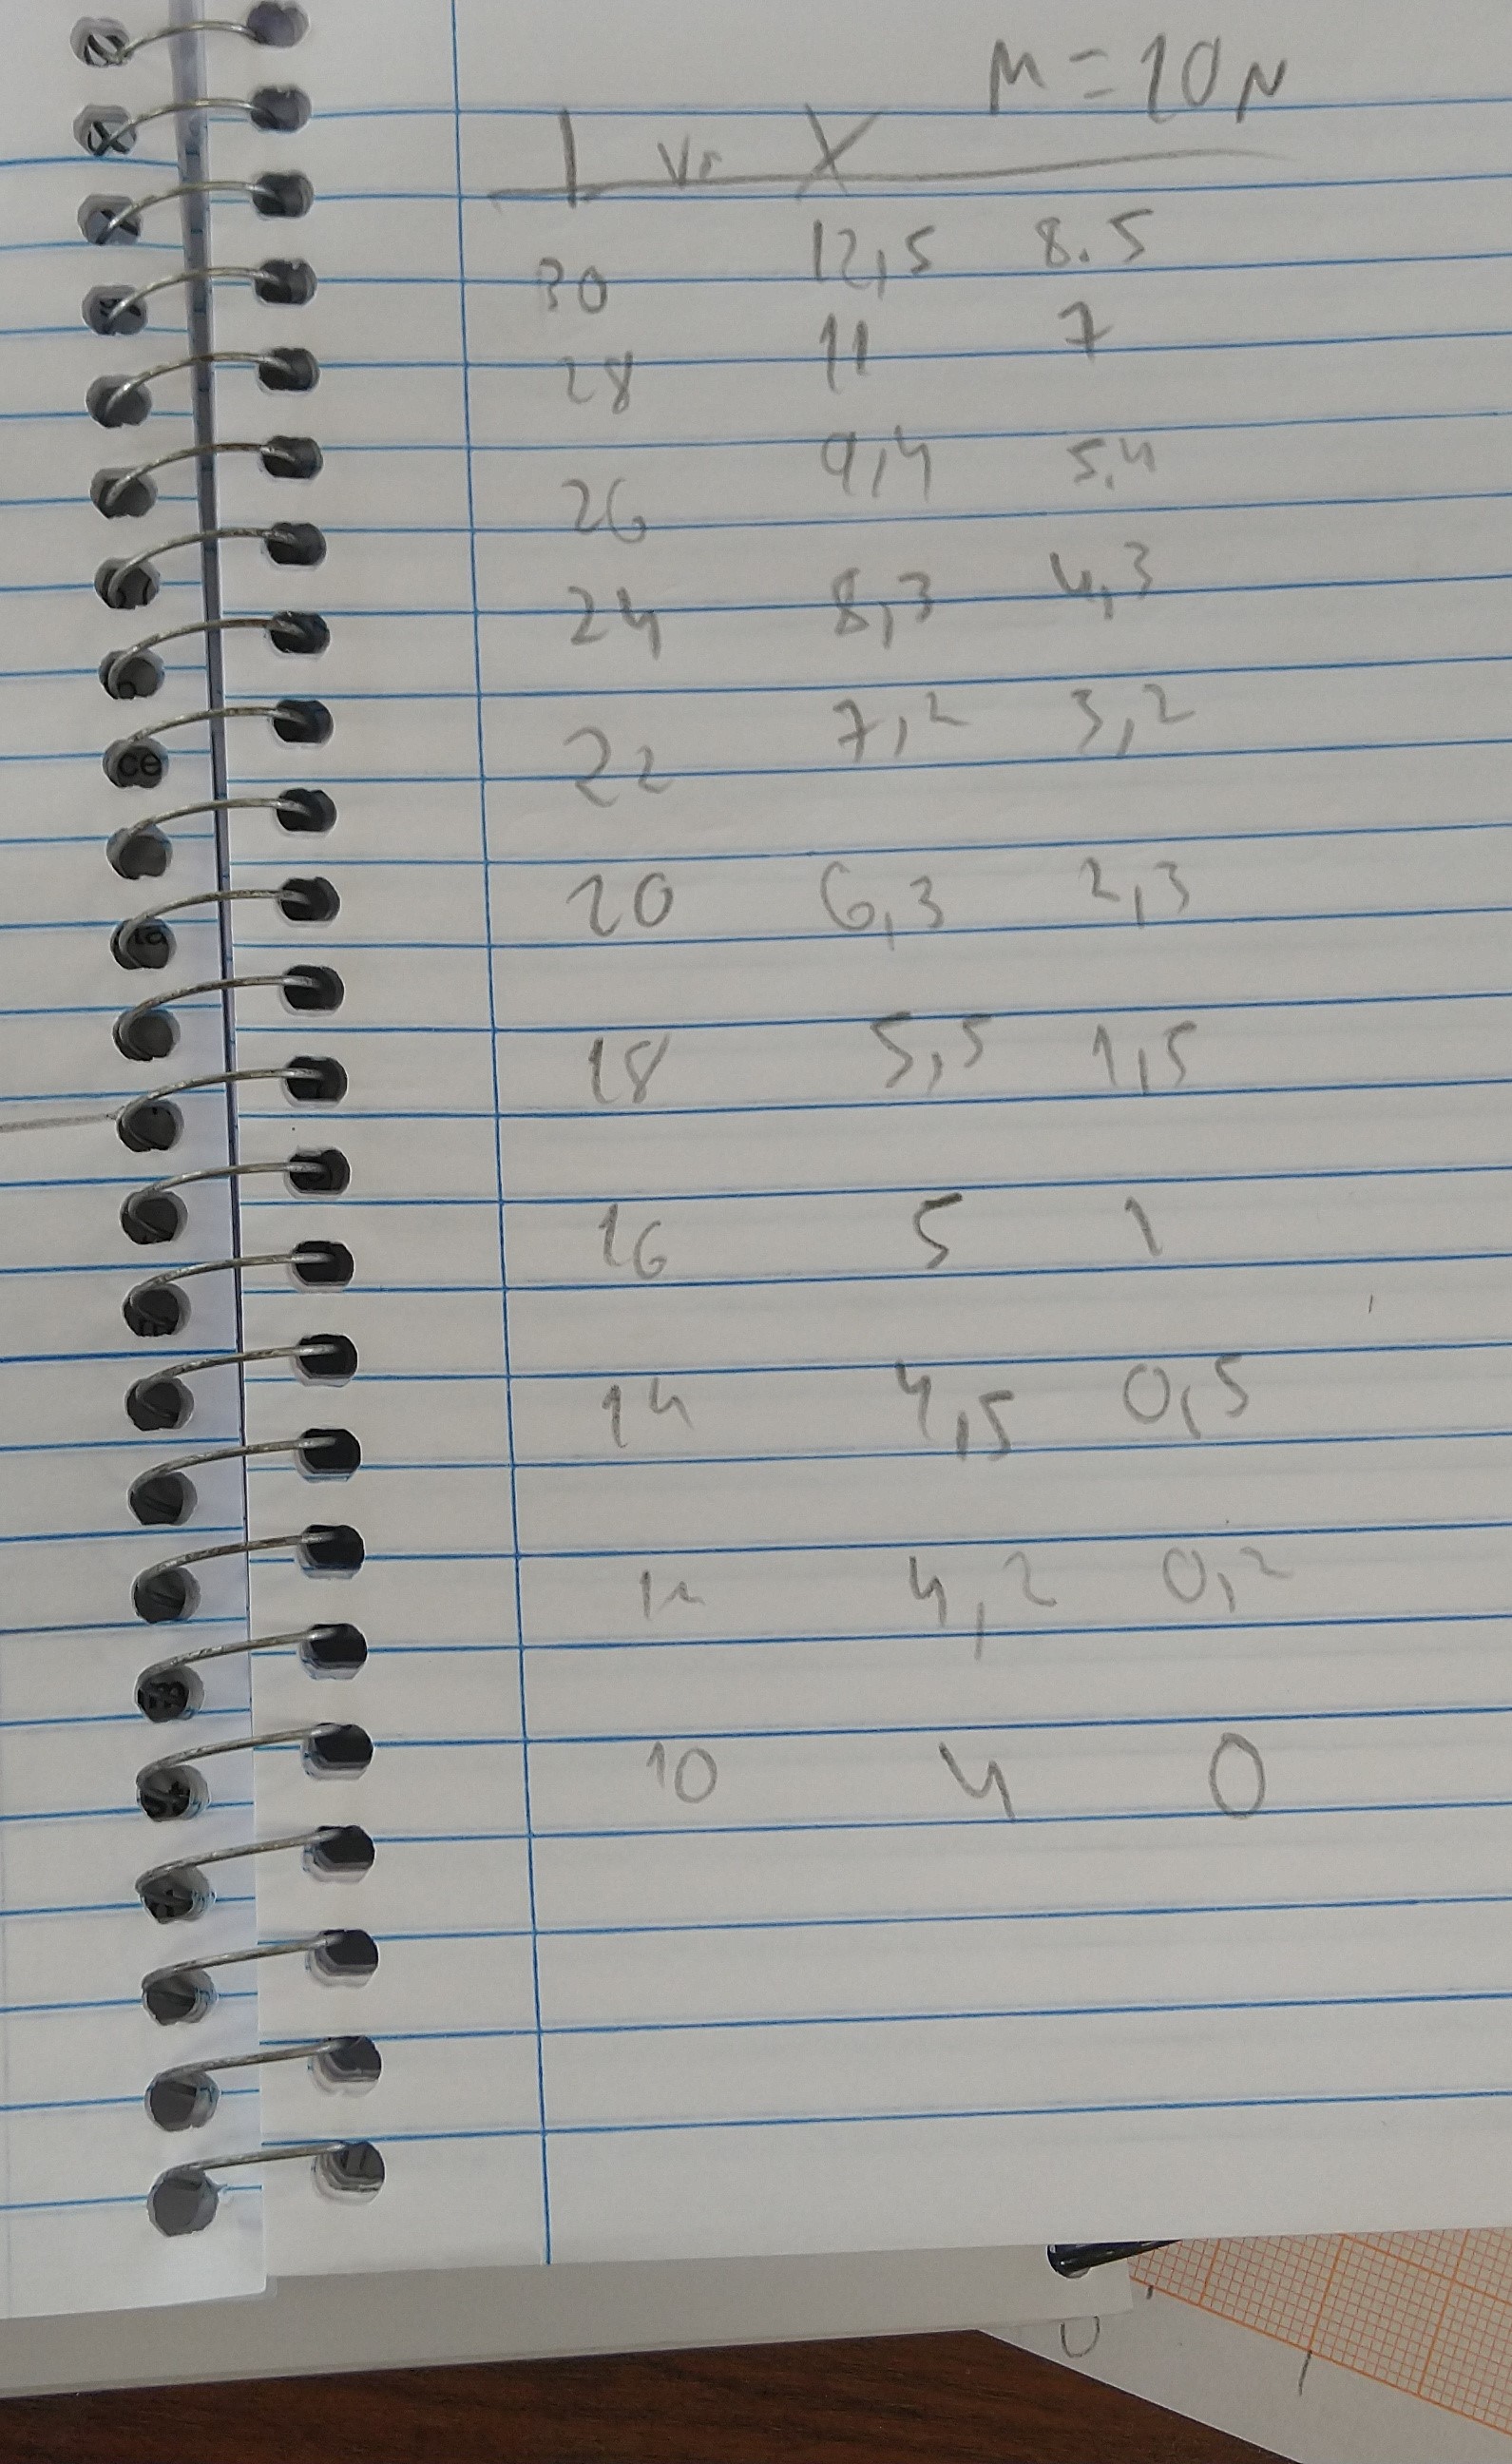 M = 10 N
L vs X
30 12,5 8.5
28 11 7
26 9,4 5,4
24 8,3 4,3
22 7,2 3,2
20 6,3 2,3
18 5,5 1,5
16 5 1
14 4,5 0,5
12 4,2 0,2
10 4 0
ce
ta
0